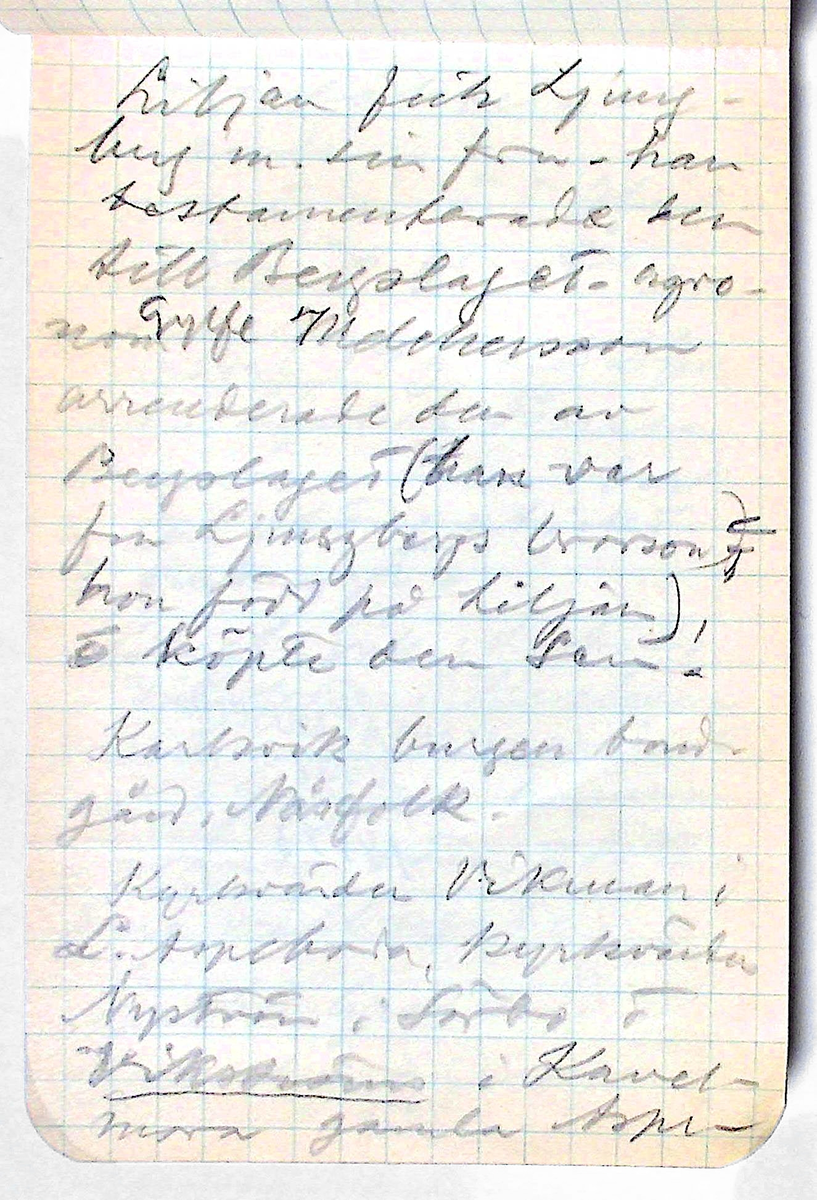 Liljan fick Ljung-
berg m. sin fru - han
testamenterade den
till Bergslaget - agro-
nom Melchersson
arrenderade den av
Bergslaget (han var
fru Ljungbergs brorson)
hon född på Liljan)!
o köpte den sen!
Karlsvik burgen bond-
gård. Näsfolk.
Kyrkvärden Vikman i
L. Aspeboda, kyrkvärden
Nyström i Sörbo o
Vikströms i Kavel-
mora gamla Aspe-